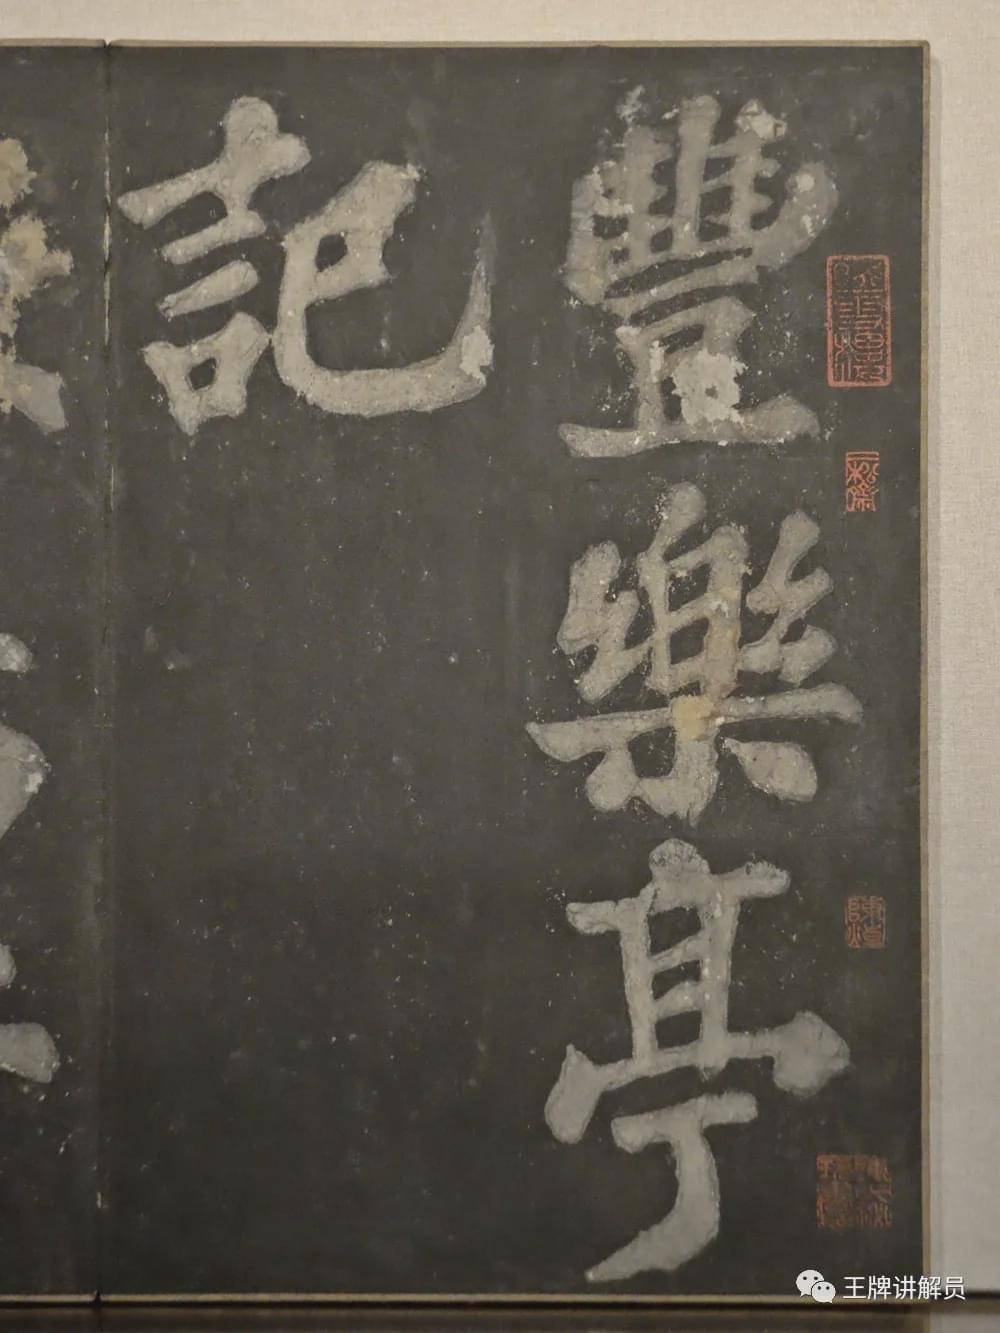 豐樂亭
記
王牌讲解员